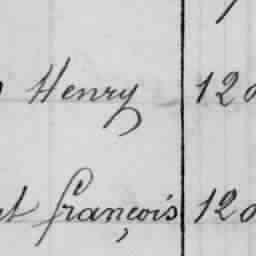 Henry 12
françois 12